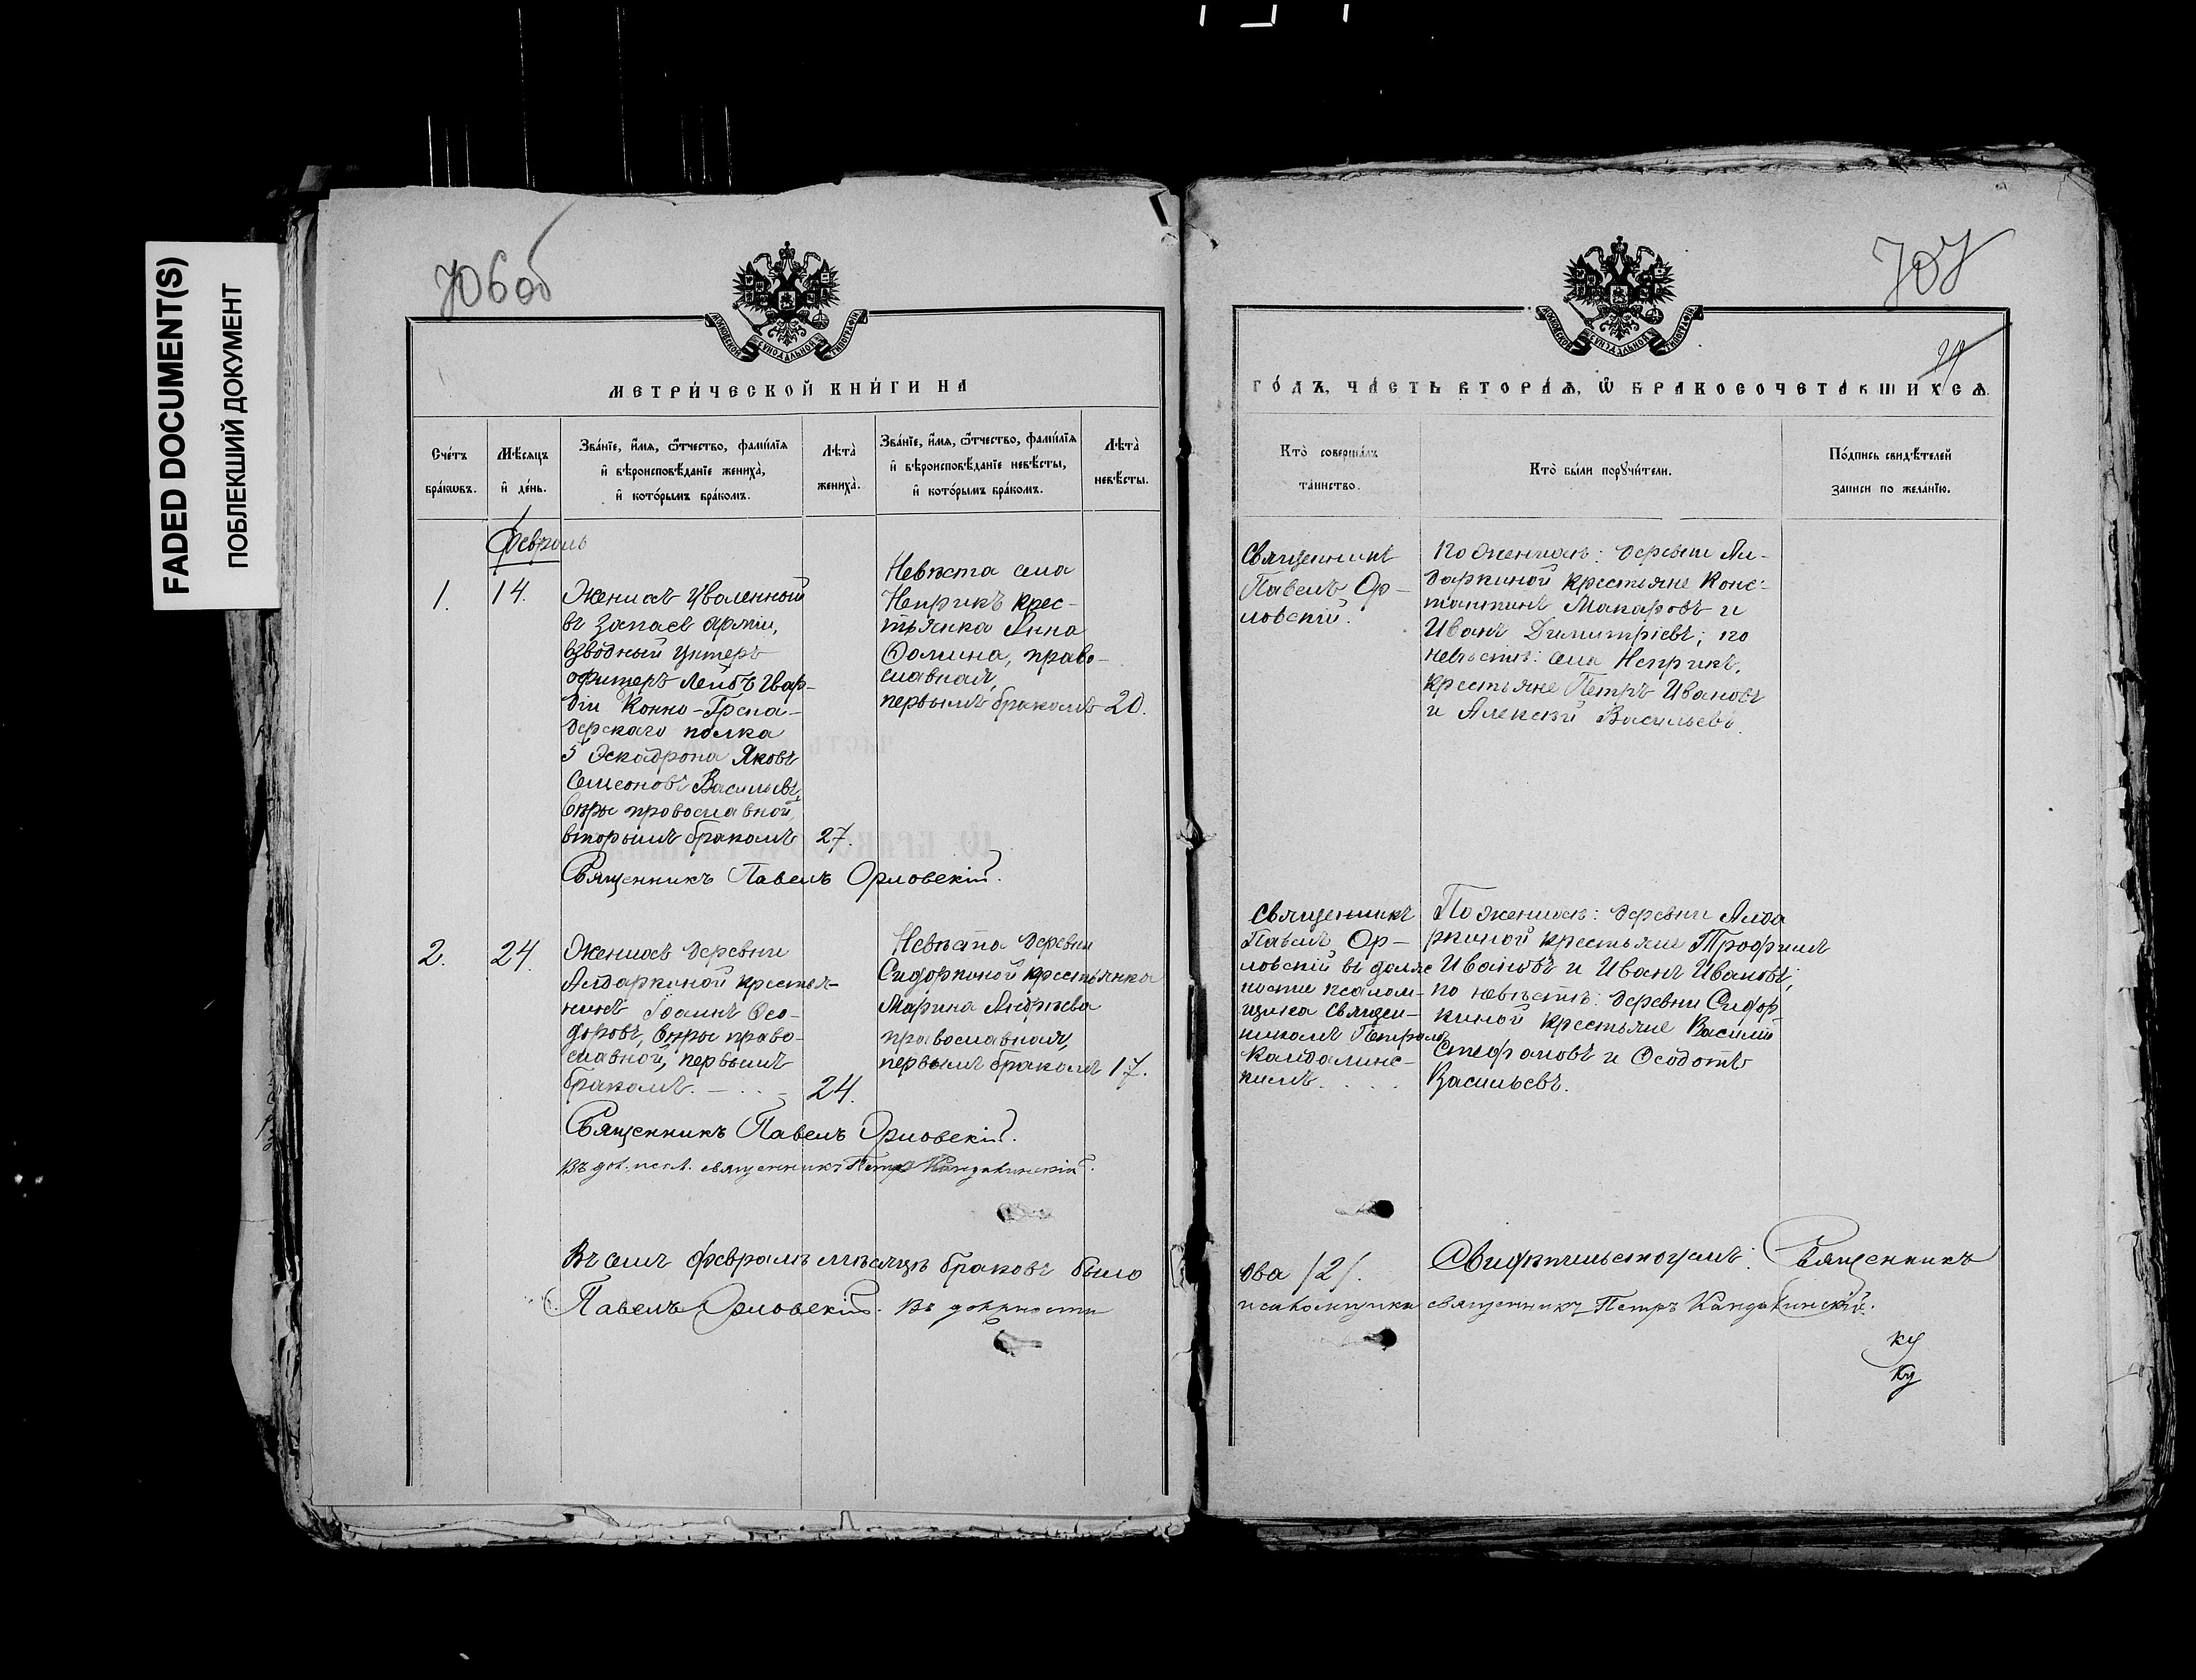 FADED DOCUMENT(S)
ПОБЛЕКШИЙ ДОКУМЕНТ
706об
МОСКОВСКОЙ СѴНОДАЛЬНОЙ ТИПОГРАФІИ
МЕТРИ́ЧЕСКОЙ КНИ́ГИ НА
Сче́тъ
бра́кѡвъ.
Мѣ́сяцъ
и҆ де́нь.
Зва́нїе, и҆́мѧ, ѻ҆́тчество, фами́лїѧ
и҆ вѣроисповѣ́данїе жениха̀,
и҆ кото́рымъ бра́комъ.
Лѣта̀
жениха̀.
Зва́нїе, и҆́мѧ, ѻ҆́тчество, фами́лїѧ
и҆ вѣроисповѣ́данїе невѣ́сты,
и҆ кото́рымъ бра́комъ.
Лѣта̀
невѣ́сты.
Февраль
1.
14.
Женихъ уволенный
въ запасъ арміи,
взводный унтеръ
офицеръ Лейбъ Гвар-
діи Конно-Грена-
дерскаго полка
5 Эскадрона Яковъ
Семеоновъ Васильевъ,
вѣры православной,
вторымъ бракомъ
27.
Невѣста села
Неприкъ крес-
тьянка Анна
Ѳомина, право-
славная,
первымъ бракомъ
20.
Священникъ Павелъ Орловскій.
2.
24.
Женихъ деревни
Алдаркиной крестья-
нинъ Іоаннъ Ѳео-
доровъ, вѣры право-
славной, первымъ
бракомъ.
24.
Невѣста деревни
Сидоркиной крестьянка
Марина Андреева
православная,
первымъ бракомъ
17.
Священникъ Павелъ Орловскій.
Въ дол. псал. священникъ Петръ Кандалинскій.
Въ семъ февралѣ мѣсяцѣ браковъ было
Павелъ Орловскій. Въ должности
707
МОСКОВСКОЙ СѴНОДАЛЬНОЙ ТИПОГРАФІИ
ГО́ДЪ, ЧА́СТЬ ВТОРА́Ѧ, Ѡ҆ БРАКОСОЧЕТА́ВШИХСѦ.
Кто̀ соверша́лъ
та́инство.
Кто̀ бы́ли порꙋчи́тели.
По́дпись свидѣ́телей
за́писи по жела́нїю.
Священникъ
Павелъ Ор-
ловскій.
По женихѣ: деревни Ал-
даркиной крестьяне Конс-
тантинъ Макаровъ и
Иванъ Димитріевъ; по
невѣстѣ: села Неприкъ,
крестьяне Петръ Ивановъ
и Алексѣй Васильевъ.
Священникъ
Павелъ Ор-
ловскій въ долж-
ности псалом-
щика священ-
никомъ Петромъ
Кандалинс-
кимъ.
По женихѣ: деревни Алда
ркиной крестьяне Трофимъ
Ивановъ и Иванъ Ивановъ;
по невѣстѣ: деревни Сидор-
киной крестьяне Василій
Стефановъ и Ѳеодотъ
Васильевъ.
два /2/.
Свидѣтельствуемъ: Священникъ
псаломщика священникъ Петръ Кандалинскій.